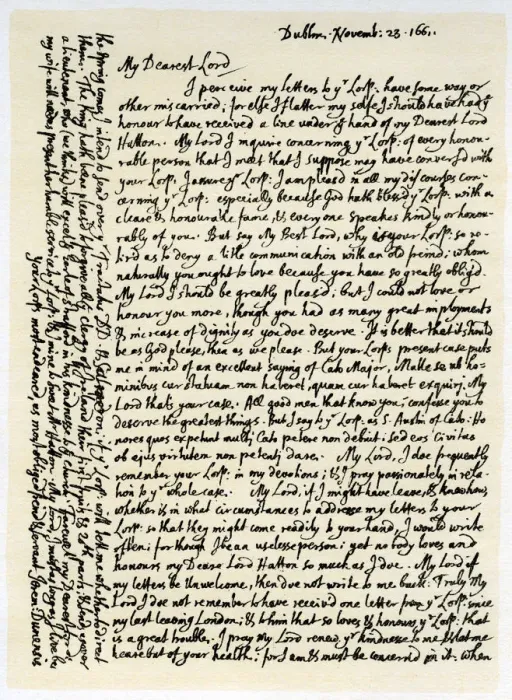 Dublin. Novemb: 23. 166
My Dearest Lord
I perceive my letters to yr Losp: have some way or
other miscarried; for else I flatter my selfe I should have had ye
honour to have received a line under ye hand of my Dearest Lord
Hatton. My Lord I inquire concerning yr Losp: of every honou-
rable person that I meet that I suppose may have convers'd with
your Losp; I assure yr Losp: I am pleas'd in all my discourses con-
cerning yr Losp: especially because God hath bless'd yr Losp: with a
cleare & honourable fame, & every one speakes kindly or honou-
rably of you. But say My Best Lord, why is your Losp: so re-
tir'd as to deny a litle communication with an old freind; whom
naturally you ought to love because you have so greatly oblig'd.
My Lord I should be greatly pleas'd; but I could not love or
honour you more, though you had as many great imployments
& increase of dignity as you doe deserve. It is better that it should
be as God please, then as we please. But your Losps present case puts
me in mind of an excellent saying of Cato Major, Malle se ab ho-
minibus cur statuam non haberet, quam cur haberet exquiri. My
Lord that's your case. All good men that know you, confesse you to
deserve the greatest things. But I say to yr Losp: as S. Austin of Cato: Ho
nores quos expetunt multi, Cato petere non debuit; sed eos Civitas
ob ejus virtutem non petenti dare. My Lord, I doe frequently
remember your Losp: in my devotions; & I pray passionately in rela-
tion to yr whole case. My Lord, if I might have leave, & knew how,
whether & in what circumstances to address my letters to your
Losp: so that they might come readily to your hand, I would write
often; for though I be an uselesse person; yet no body loves and
honours my Deare Lord Hatton so much as I doe. My Lord if
my letters be Unwelcome, then doe not write to me back: Truly My
Lord I doe not remember to have receiv'd one letter from yr Losp: since
my last leaving London; & to him that so loves & honours yr Losp: that
is a great trouble. I pray my Lord renew yr kindnesse to me & let me
heare but of your health; for I am & must be concern'd in it. when
the spring comes, I intend to send over yr if yr Losp: will tell me whether to direct
them. The King hath been pleased to forgive all ye clergy of Ireland their first fruits & 20th parts,
a lieutenant, who (we thinke) will excell
my wife will needs present her humble service to yr Losp: & mine
Your Losps most endeared, as most obliged freind & servant Jerem: Dunensis